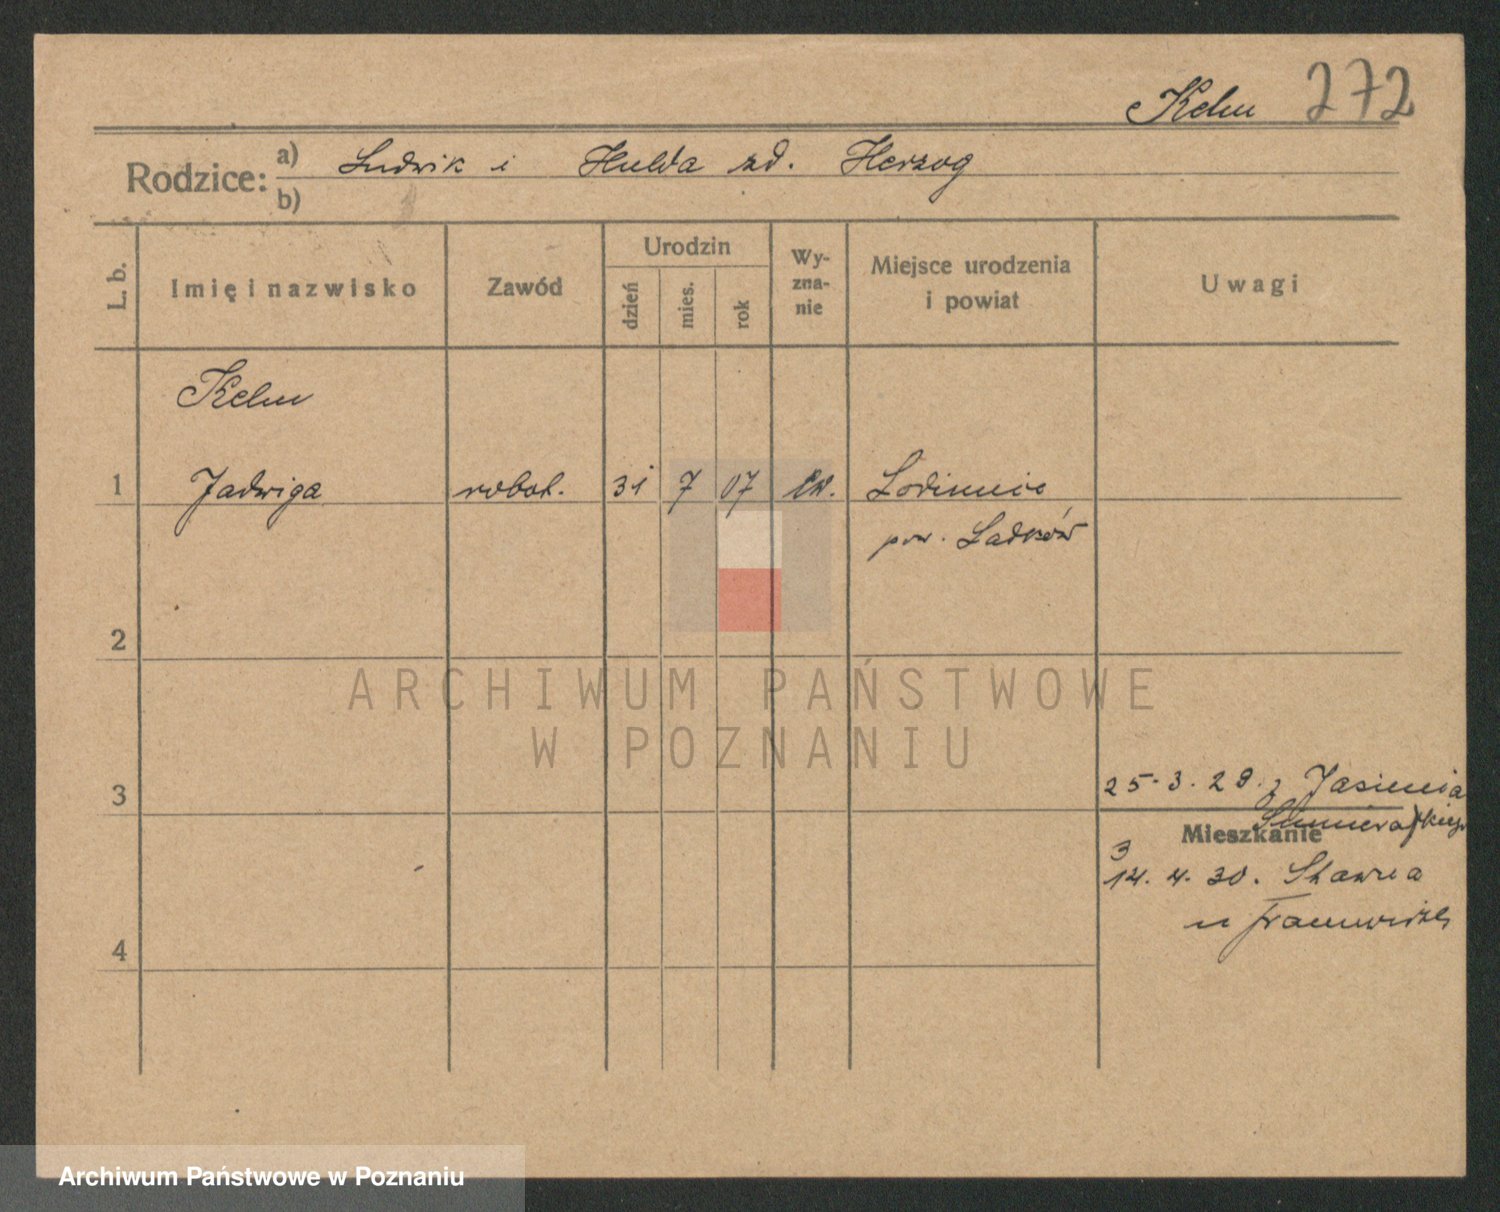 Kelm 272
Rodzice: a) Ludwik i Hulda zd. Herzog
b)
L. b.
Imię i nazwisko
Zawód
Urodzin
dzień
mies.
rok
Wy-
zna-
nie
Miejsce urodzenia
i powiat
Uwagi
Kelm
1 Jadwiga robot. 31 7 07 ew.
pow.
2
ARCHIWUM PAŃSTWOWE
W POZNANIU
3
25.3.29. z
Mieszkanie
3
14. 4. 30.
4
Archiwum Państwowe w Poznaniu